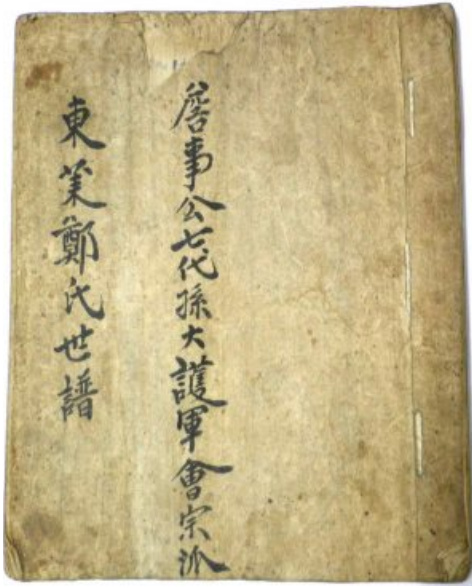 詹事公七代孫大護軍會宗派
東莱鄭氏世譜